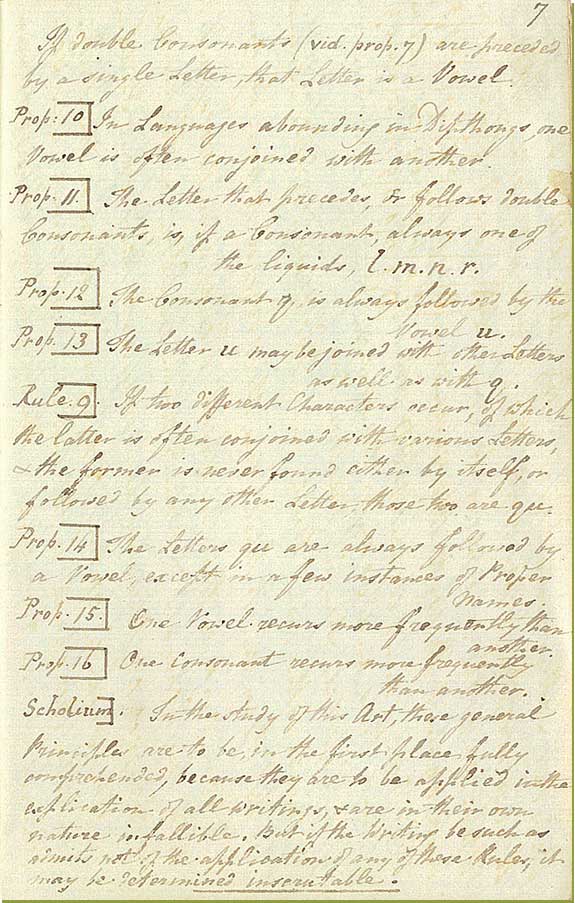 7
If double Consonants (vid. prop. 7) are preceded
by a single Letter, that Letter is a Vowel.
Prop: 10 In Languages abounding in Dipthongs, one
Vowel is often conjoined with another.
Prop. 11. The Letter that precedes, or follows double
Consonants, is, if a Consonant, always one of
the liquids, l. m. n. r.
Prop. 12 The Consonant q, is always followed by the
Vowel u.
Prop. 13 The Letter u may be joined with other Letters
as well as with q.
Rule. 9. If two different Characters occur, of which
the latter is often conjoined with various Letters,
& the former is never found either by itself, or
followed by any other Letter, those two are qu.
Prop. 14 The Letters qu are always followed by
a Vowel, except in a few instances of Proper
Names.
Prop. 15. One Vowel recurs more frequently than
another.
Prop. 16 One Consonant recurs more frequently
than another.
Scholium. In the study of this Art, these general
Principles are to be, in the first place fully
comprehended, because they are to be applied in the
explication of all writings, & are in their own
nature infallible. But if the Writing be such as
admits not of the application of any of these Rules, it
may be determined inscrutable.